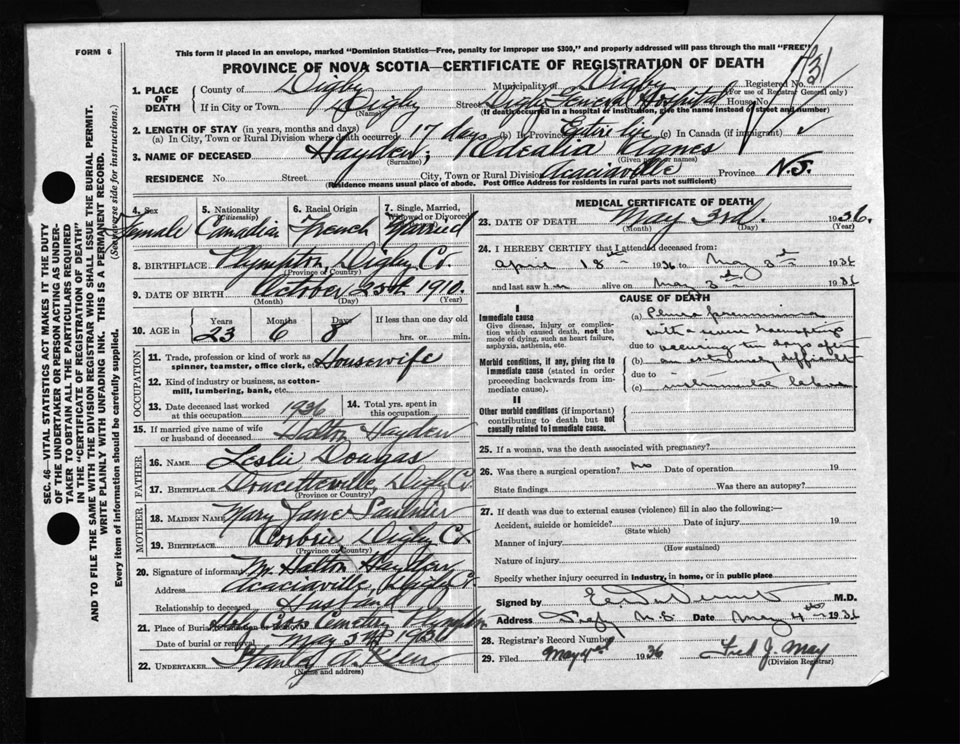 FORM 6
This form if placed in an envelope, marked "Dominion Statistics—Free, penalty for improper use $300," and properly addressed will pass through the mail "FREE"
PROVINCE OF NOVA SCOTIA—CERTIFICATE OF REGISTRATION OF DEATH
1. PLACE OF DEATH
County of Digby Municipality of Digby Registered No.
(For use of Registrar General only)
If in City or Town Digby Street Digby General Hospital House No.
(Name) (If death occurred in a hospital or institution, give the name instead of street and number)
2. LENGTH OF STAY (in years, months and days)
(a) In City, Town or Rural Division where death occurred 17 days (b) In Province Entire life (c) In Canada (if immigrant)
3. NAME OF DECEASED Hayden, Odealia Agnes
(Surname) (Given name or names)
RESIDENCE No. Street City, Town or Rural Division Acaciaville Province N.S.
(Residence means usual place of abode. Post Office Address for residents in rural parts not sufficient)
4. Sex Female
5. Nationality (Citizenship) Canadian
6. Racial Origin French
7. Single, Married, Widowed or Divorced Married
8. BIRTHPLACE Plympton, Digby Co.
(Province or Country)
9. DATE OF BIRTH October 25th 1910
(Month) (Day) (Year)
10. AGE in Years Months Days If less than one day
23 6 8 hrs. or min.
OCCUPATION
11. Trade, profession or kind of work as spinner, teamster, office clerk, etc. Housewife
12. Kind of industry or business, as cotton-mill, lumbering, bank, etc.
13. Date deceased last worked at this occupation 1936
14. Total yrs. spent in this occupation
15. If married give name of wife or husband of deceased Halton Hayden
FATHER
16. NAME Leslie
17. BIRTHPLACE Doucetteville, Digby Co.
(Province or Country)
MOTHER
18. MAIDEN NAME Mary Jane Saulnier
19. BIRTHPLACE Digby Co.
(Province or Country)
20. Signature of informant Mr Halton Hayden
Address Acaciaville, Digby Co.
Relationship to deceased Husband
21. Place of Burial, Cremation or removal Cemetery Plympton
Date of burial or removal May 5th 1936
22. UNDERTAKER Stanley
(Name and address)
MEDICAL CERTIFICATE OF DEATH
23. DATE OF DEATH May 3rd. 1936.
(Month) (Day) (Year)
24. I HEREBY CERTIFY that I attended deceased from:
April 18th 1936 to May 3rd 1936
and last saw h alive on May 3rd 1936
CAUSE OF DEATH
I
Immediate cause
Give disease, injury or complication which caused death, not the mode of dying, such as heart failure, asphyxia, asthenia, etc.
Morbid conditions, if any, giving rise to immediate cause (stated in order proceeding backwards from immediate cause).
II
Other morbid conditions (if important) contributing to death but not causally related to immediate cause.
(a) Pleuro pneumonia
with a severe
due to occurring ten days after
(b) an extremely difficult
due to
(c) labour
25. If a woman, was the death associated with pregnancy?
26. Was there a surgical operation? no Date of operation 19
State findings Was there an autopsy?
27. If death was due to external causes (violence) fill in also the following:—
Accident, suicide or homicide? Date of injury 19
(State which)
Manner of injury
(How sustained)
Nature of injury
Specify whether injury occurred in industry, in home, or in public place
Signed by M.D.
Address Digby N.S. Date May 4th 1936
28. Registrar's Record Number
29. Filed May 4th 1936 Fred J. May
(Division Registrar)
SEC. 46—VITAL STATISTICS ACT MAKES IT THE DUTY OF THE UNDERTAKER OR PERSON ACTING AS UNDERTAKER TO OBTAIN ALL THE PARTICULARS REQUIRED IN THE "CERTIFICATE OF REGISTRATION OF DEATH"
AND TO FILE THE SAME WITH THE DIVISION REGISTRAR WHO SHALL ISSUE THE BURIAL PERMIT.
WRITE PLAINLY WITH UNFADING INK. THIS IS A PERMANENT RECORD.
Every item of information should be carefully supplied. (See reverse side for instructions.)